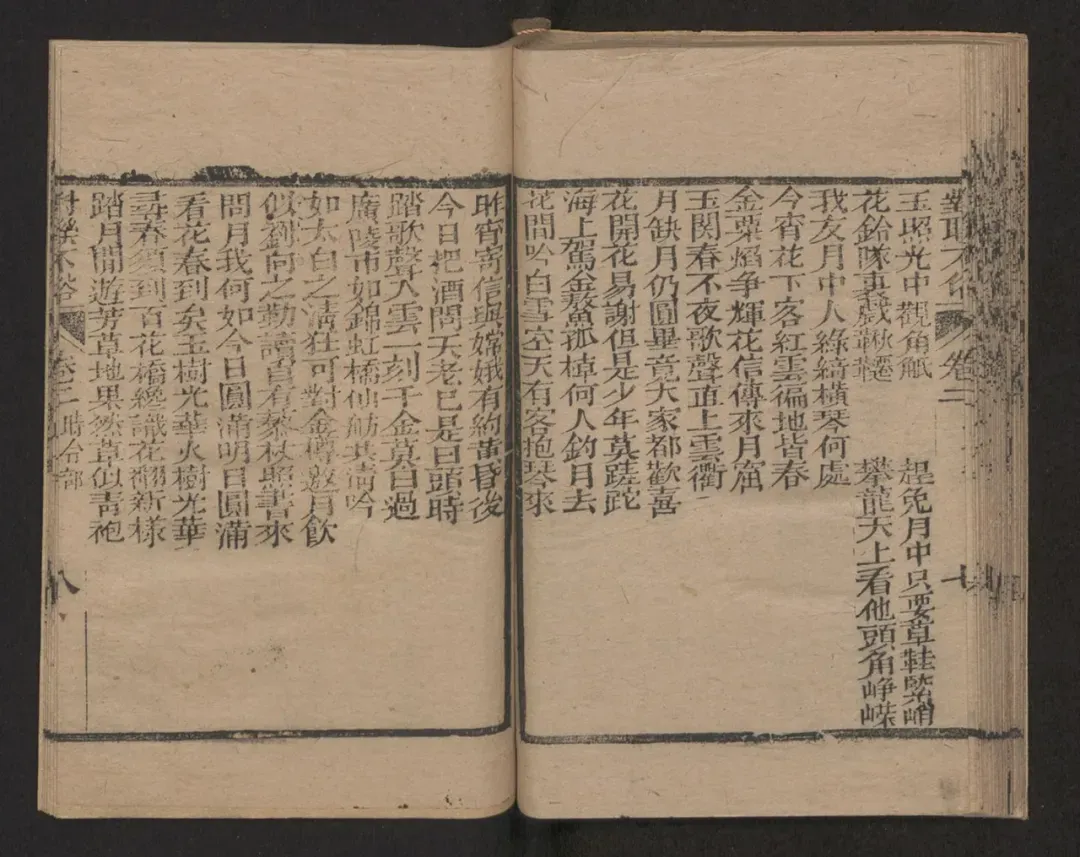 對聯不俗 卷二 七
玉照光中觀角觝 趕兔月中只要草鞋緊峭
花鈴隊裏戲鞦韆 攀龍天上看他頭角崢嶸
我友月中人綠綺橫琴何處
今宵花下客紅雲徧地皆春
金粟焰爭輝花信傳來月窟
玉關春不夜歌聲直上雲衢
月缺月仍圓畢竟大家都歡喜
花開花易謝但是少年莫蹉跎
海上駕金鰲孤棹何人釣月去
花間吟白雪空天有客抱琴來
昨宵寄信與嫦娥有約黃昏後
今日把酒問天老已是日頭時
踏歌聲入雲一刻千金莫白過
廣陵市如錦虹橋仙舫共清吟
如太白之清狂可對金樽邀月飲
似劉向之勤讀自有藜杖照書來
問月我何如今日圓滿明日圓滿
看花春到矣玉樹光華火樹光華
尋春須到百花橋纔識花翻新樣
踏月閒遊芳草地果然草似青袍
對聯不俗 卷二 時令部 八